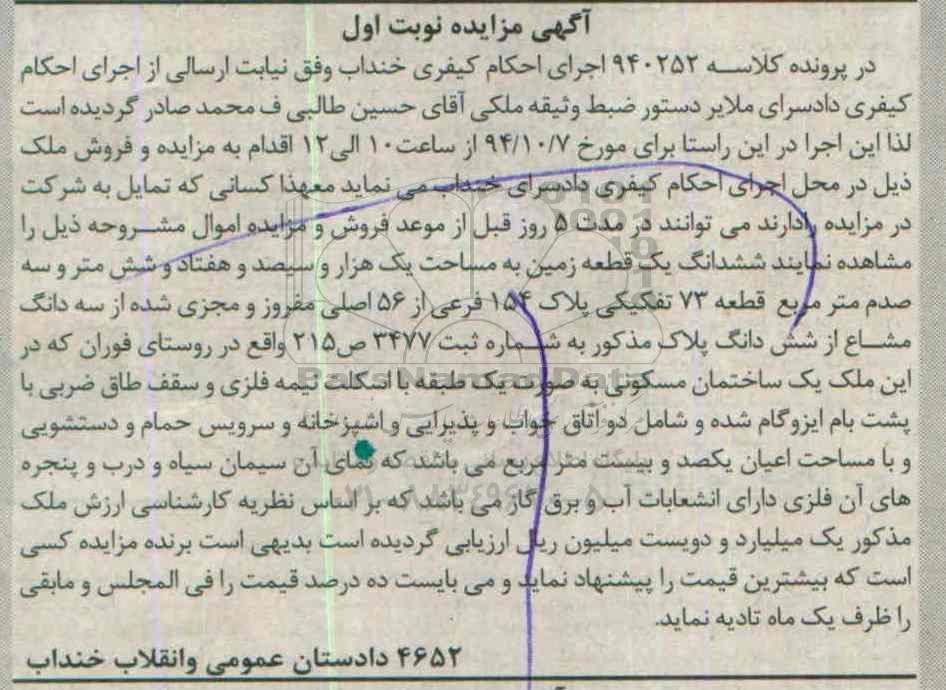 آگهی مزایده نوبت اول
در پرونده کلاسه ۹۴۰۲۵۲ اجرای احکام کیفری خنداب وفق نیابت ارسالی از اجرای احکام
کیفری دادسرای ملایر دستور ضبط وثیقه ملکی آقای حسین طالبی ف محمد صادر گردیده است
لذا این اجرا در این راستا برای مورخ ۹۴/۱۰/۷ از ساعت۱۰ الی۱۲ اقدام به مزایده و فروش ملک
ذیل در محل اجرای احکام کیفری دادسرای خنداب می نماید معهذا کسانی که تمایل به شرکت
در مزایده رادارند می توانند در مدت ۵ روز قبل از موعد فروش و مزایده اموال مشروحه ذیل را
مشاهده نمایند ششدانگ یک قطعه زمین به مساحت یک هزار و سیصد و هفتاد و شش متر و سه
صدم متر مربع قطعه ۷۳ تفکیکی پلاک ۱۵۴ فرعی از ۵۶ اصلی مفروز و مجزی شده از سه دانگ
مشاع از شش دانگ پلاک مذکور به شماره ثبت ۳۴۷۷ ص۲۱۵ واقع در روستای فوران که در
این ملک یک ساختمان مسکونی به صورت یک طبقه با اسکلت نیمه فلزی و سقف طاق ضربی با
پشت بام ایزوگام شده و شامل دو اتاق خواب و پذیرایی و اشپزخانه و سرویس حمام و دستشویی
و با مساحت اعیان یکصد و بیست متر مربع می باشد که نمای آن سیمان سیاه و درب و پنجره
های آن فلزی دارای انشعابات آب و برق گاز می باشد که بر اساس نظریه کارشناسی ارزش ملک
مذکور یک میلیارد و دویست میلیون ریال ارزیابی گردیده است بدیهی است برنده مزایده کسی
است که بیشترین قیمت را پیشنهاد نماید و می بایست ده درصد قیمت را فی المجلس و مابقی
را ظرف یک ماه تادیه نماید.
۴۶۵۲ دادستان عمومی وانقلاب خنداب